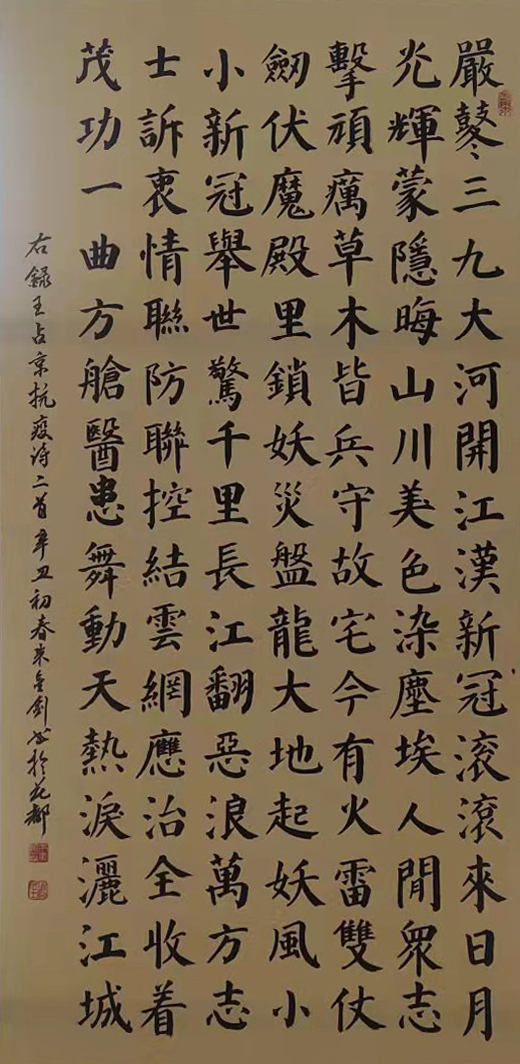 嚴鼕三九大河開江漢新冠滚滾來日月
光輝蒙隱晦山川美色染塵埃人閒眾志
擊頑癘草木皆兵守故宅今有火雷雙仗
劒伏魔殿里鎖妖災盤龍大地起妖風小
小新冠舉世驚千里長江翻惡浪萬方志
士訴衷情聯防聯控結雲網應治全收着
茂功一曲方艙醫患舞動天熱淚灑江城
右錄王占京抗疫诗二首辛丑初春金剑书於花都